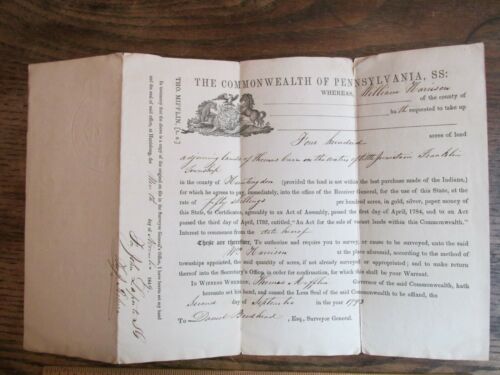 THE COMMONWEALTH OF PENNSYLVANIA, SS:
WHEREAS, William Harrison
of the county of
hath requested to take up
Four hundred acres of land
adjoining lands of Thomas on the waters of Franklin
Township
in the county of Huntingdon (provided the land is not within the last purchase made of the Indians,)
for which he agrees to pay, immediately, into the office of the Receiver General, for the use of this State, at the
rate of fifty shillings per hundred acres, in gold, silver, paper money of
this State, in Certificates, agreeably to an Act of Assembly, passed the first of April, 1784, and to an Act
passed the third of April, 1792, entitled "An Act for the sale of vacant lands within this Commonwealth."
Interest to commence from the date hereof
These are therefore, To authorize and require you to survey, or cause to be surveyed, unto the said
Wm Harrison at the place aforesaid, according to the method of
townships appointed, the said quantity of acres, if not already surveyed or appropriated; and to make return
thereof into the Secretary's Office, in order for confirmation, for which this shall be your Warrant.
IN WITNESS WHEREOF, Thomas Mifflin Governor of the said Commonwealth, hath
hereunto set his hand, and caused the Less Seal of the said Commonwealth to be affixed, the
Second day of September 1793
To Daniel Brodhead, Esq., Surveyor General.
THO. MIFFLIN, [L. S.]
In testimony that the above is a copy of the original on file in the Surveyor General's Office, I have hereunto set my hand
and the seal of said office, at Harrisburg, the
day of November 1849